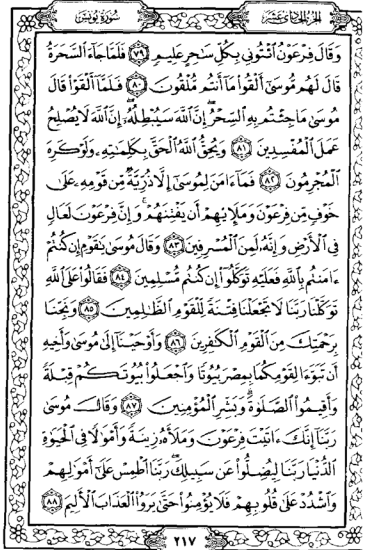 الجزء الحادي عشر
سورة يونس
وَقَالَ فِرْعَوْنُ ٱئْتُونِى بِكُلِّ سَٰحِرٍ عَلِيمٍ ٧٩ فَلَمَّا جَآءَ ٱلسَّحَرَةُ
قَالَ لَهُم مُّوسَىٰٓ أَلْقُوا۟ مَآ أَنتُم مُّلْقُونَ ٨٠ فَلَمَّآ أَلْقَوْا۟ قَالَ
مُوسَىٰ مَا جِئْتُم بِهِ ٱلسِّحْرُ إِنَّ ٱللَّهَ سَيُبْطِلُهُۥٓ إِنَّ ٱللَّهَ لَا يُصْلِحُ
عَمَلَ ٱلْمُفْسِدِينَ ٨١ وَيُحِقُّ ٱللَّهُ ٱلْحَقَّ بِكَلِمَٰتِهِۦ وَلَوْ كَرِهَ
ٱلْمُجْرِمُونَ ٨٢ فَمَآ ءَامَنَ لِمُوسَىٰٓ إِلَّا ذُرِّيَّةٌ مِّن قَوْمِهِۦ عَلَىٰ
خَوْفٍ مِّن فِرْعَوْنَ وَمَلَإِي۟هِمْ أَن يَفْتِنَهُمْ وَإِنَّ فِرْعَوْنَ لَعَالٍ
فِى ٱلْأَرْضِ وَإِنَّهُۥ لَمِنَ ٱلْمُسْرِفِينَ ٨٣ وَقَالَ مُوسَىٰ يَٰقَوْمِ إِن كُنتُمْ
ءَامَنتُم بِٱللَّهِ فَعَلَيْهِ تَوَكَّلُوٓا۟ إِن كُنتُم مُّسْلِمِينَ ٨٤ فَقَالُوا۟ عَلَى ٱللَّهِ
تَوَكَّلْنَا رَبَّنَا لَا تَجْعَلْنَا فِتْنَةً لِّلْقَوْمِ ٱلظَّٰلِمِينَ ٨٥ وَنَجِّنَا
بِرَحْمَتِكَ مِنَ ٱلْقَوْمِ ٱلْكَٰفِرِينَ ٨٦ وَأَوْحَيْنَآ إِلَىٰ مُوسَىٰ وَأَخِيهِ
أَن تَبَوَّءَا لِقَوْمِكُمَا بِمِصْرَ بُيُوتًا وَٱجْعَلُوا۟ بُيُوتَكُمْ قِبْلَةً
وَأَقِيمُوا۟ ٱلصَّلَوٰةَ وَبَشِّرِ ٱلْمُؤْمِنِينَ ٨٧ وَقَالَ مُوسَىٰ
رَبَّنَآ إِنَّكَ ءَاتَيْتَ فِرْعَوْنَ وَمَلَأَهُۥ زِينَةً وَأَمْوَٰلًا فِى ٱلْحَيَوٰةِ
ٱلدُّنْيَا رَبَّنَا لِيُضِلُّوا۟ عَن سَبِيلِكَ رَبَّنَا ٱطْمِسْ عَلَىٰٓ أَمْوَٰلِهِمْ
وَٱشْدُدْ عَلَىٰ قُلُوبِهِمْ فَلَا يُؤْمِنُوا۟ حَتَّىٰ يَرَوُا۟ ٱلْعَذَابَ ٱلْأَلِيمَ ٨٨
٢١٧